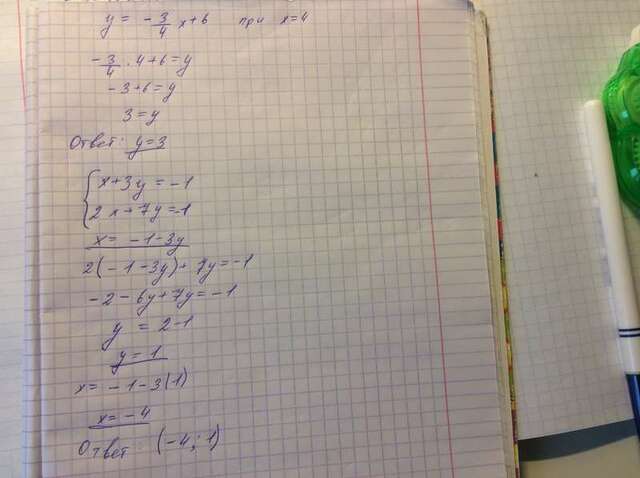 y = -3/4 x+6 при x=4
-3/4 · 4+6=y
-3+6=y
3=y
Ответ: y=3
{ x+3y=-1
2x+7y=-1
x= -1-3y
2(-1-3y)+7y=-1
-2-6y+7y=-1
y = 2-1
y=1
x= -1-3(1)
x=-4
Ответ: (-4; 1)